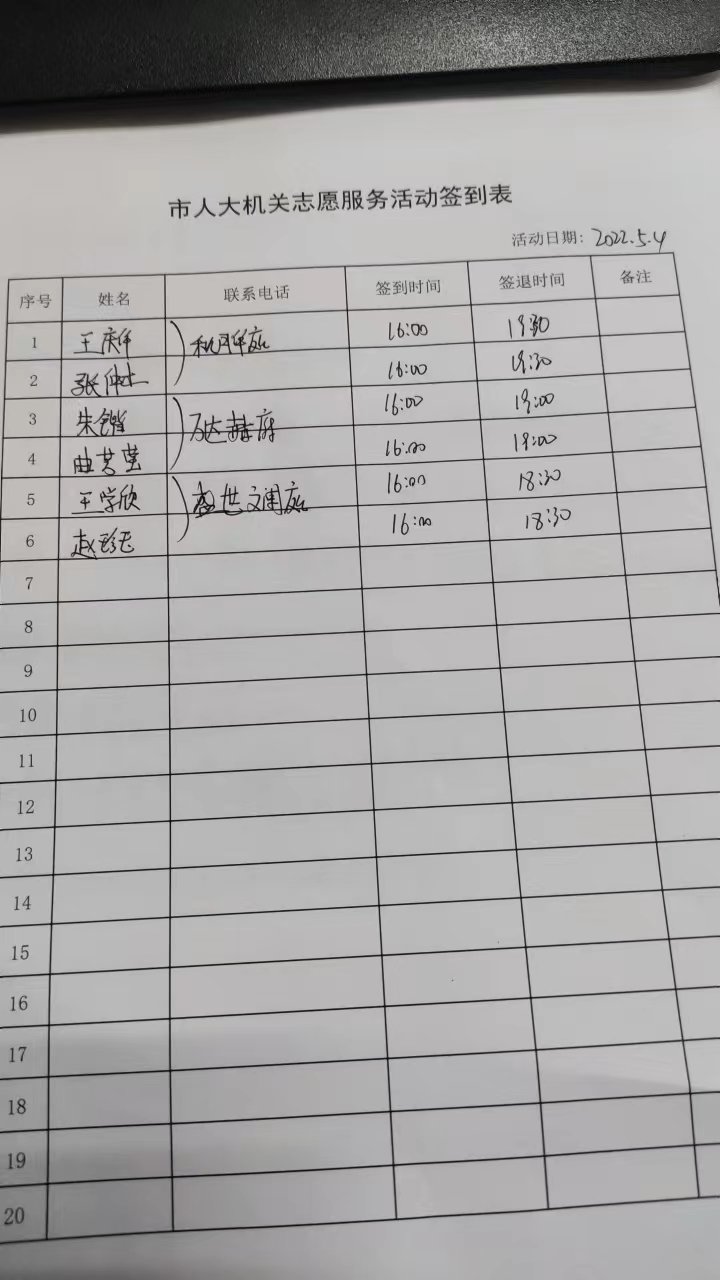 市人大机关志愿服务活动签到表
活动日期: 2022.5.4
序号 姓名 联系电话 签到时间 签退时间 备注
1 王庆伟 16:00
2 张仲 16:00
3 朱 万达赫府 16:00 19:00
4 曲 16:00 19:00
5 王学欣 盛世文阁 16:00 18:30
6 赵珍玉 16:00 18:30
7
8
9
10
11
12
13
14
15
16
17
18
19
20